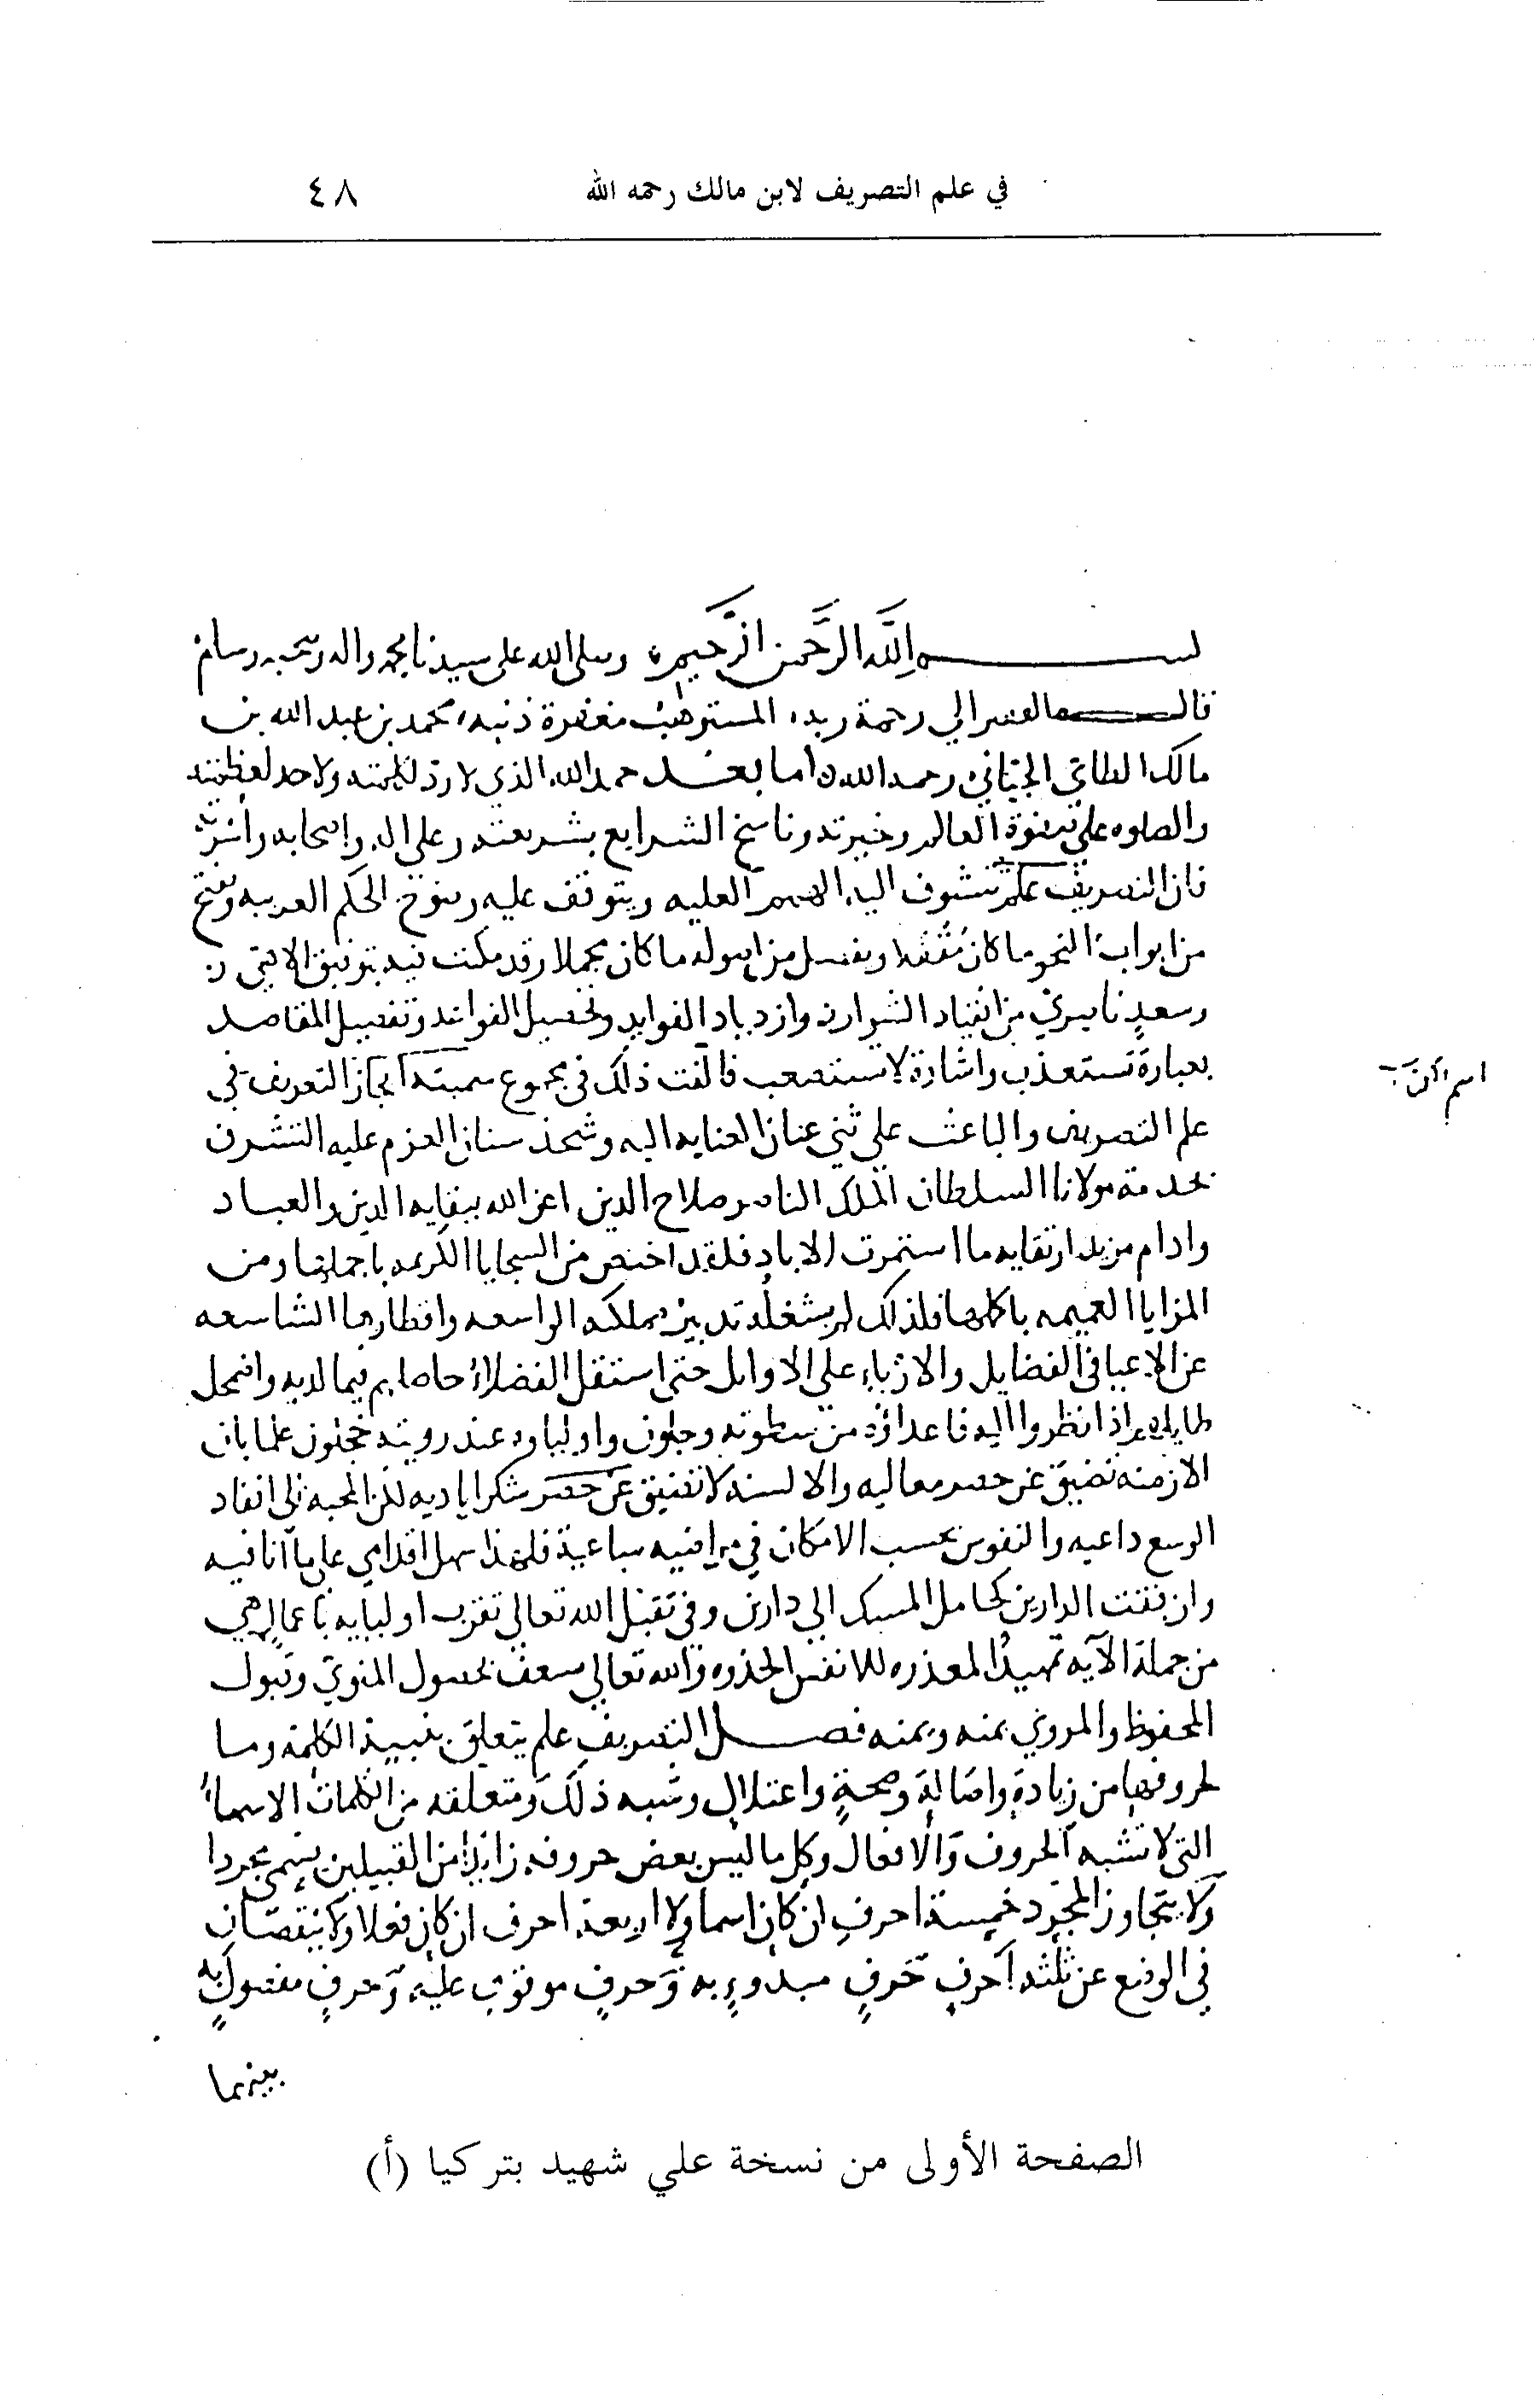 في علم التصريف لابن مالك رحمه الله
٤٨
بسم الله الرحمن الرحيم وصلى الله على سيدنا محمد واله وصحبه وسلم
قال العبد الفقير الي رحمة ربه المسترهب مغفرة ذنبه محمد بن عبد الله بن
مالك الطائي الجياني رحمه الله اما بعد حمد الله الذي لا رد لكلمته ولا حد لعظمته
والصلوه على صفوة العالم وخيرته وناسخ الشرايع بشريعته وعلى اله واصحابه واسرته
فان التصريف علم تتشوف اليه الهمم العليه ويتوقف عليه وضوح الحكم العربيه ويفتح
من ابواب النحو ما كان مقفلا ويفصل من اصوله ما كان مجملا وقد مكنت فيه بتوفيق الاهي
وسعد ناصري من انقياد الشوارد وازدياد الفوايد وتحصيل الفوائد وتفصيل المقاصد
بعبارة تستعذب واشارة لا تستصعب فالفت ذلك في مجموع سميته ايجاز التعريف في
اسم الكتاب
علم التصريف والباعث علي ثني عنان العنايه اليه وشحذ سنان العزم عليه التشرف
بخدمة مولانا السلطان الملك الناصر صلاح الدين اعز الله ببقايه الدين والعباد
وادام مزيد ارتقايه ما استمرت الاباد فلقد اختص من السجايا الكريمه باجملها ومن
المزايا العميمه باكملها فلذلك لم يشغله تدبير مملكه الواسعه واقطارها الشاسعه
عن الاعيا في الفضايل والارباء علي الاوايل حتي استقل الفضلاء حاصلهم فيما لديه واضمحل
طايلهم اذا نظروا اليه فاعداؤه من سطوته وجلون واولياوه عند رويته خجلون علما بان
الازمنه تضيق عن حصر معاليه والالسنه لا تفيق عن حصر شكر اياديه لكن المحبه الى انفاد
الوسع داعيه والنفوس بحسب الامكان في مراضيه ساعية فلهذا سهل اقدامي على ما انا فيه
وان نفقت الدارين كحامل المسك الي دارين وفي تقبل الله تعالي تقرب اوليايه باعمال هي
من جملة الآيه تمهيدا لمعذره للانفس الحذره والله تعالي يسعف بحصول المنوي وقبول
المحفوظ والمروي بمنه ويمنه فصل التصريف علم يتعلق ببنية الكلمة وما
لحروفها من زيادة واصالة وصحة واعتلال وشبه ذلك ومتعلقه من الكلمات الاسماء
التي لا تشبه الحروف والافعال وكل ما ليس بعض حروفه زايدا من القبيلين يسمى مجردا
ولا يتجاوز المجرد خمسة احرف ان كان اسما ولا اربعة احرف ان كان فعلا ولا ينقصان
في الوضع عن ثلثه احرف حرف مبدوء به وحرف موقوف عليه وحرف مفصول به
بينهما
الصفحة الأولى من نسخة علي شهيد بتركيا (أ)